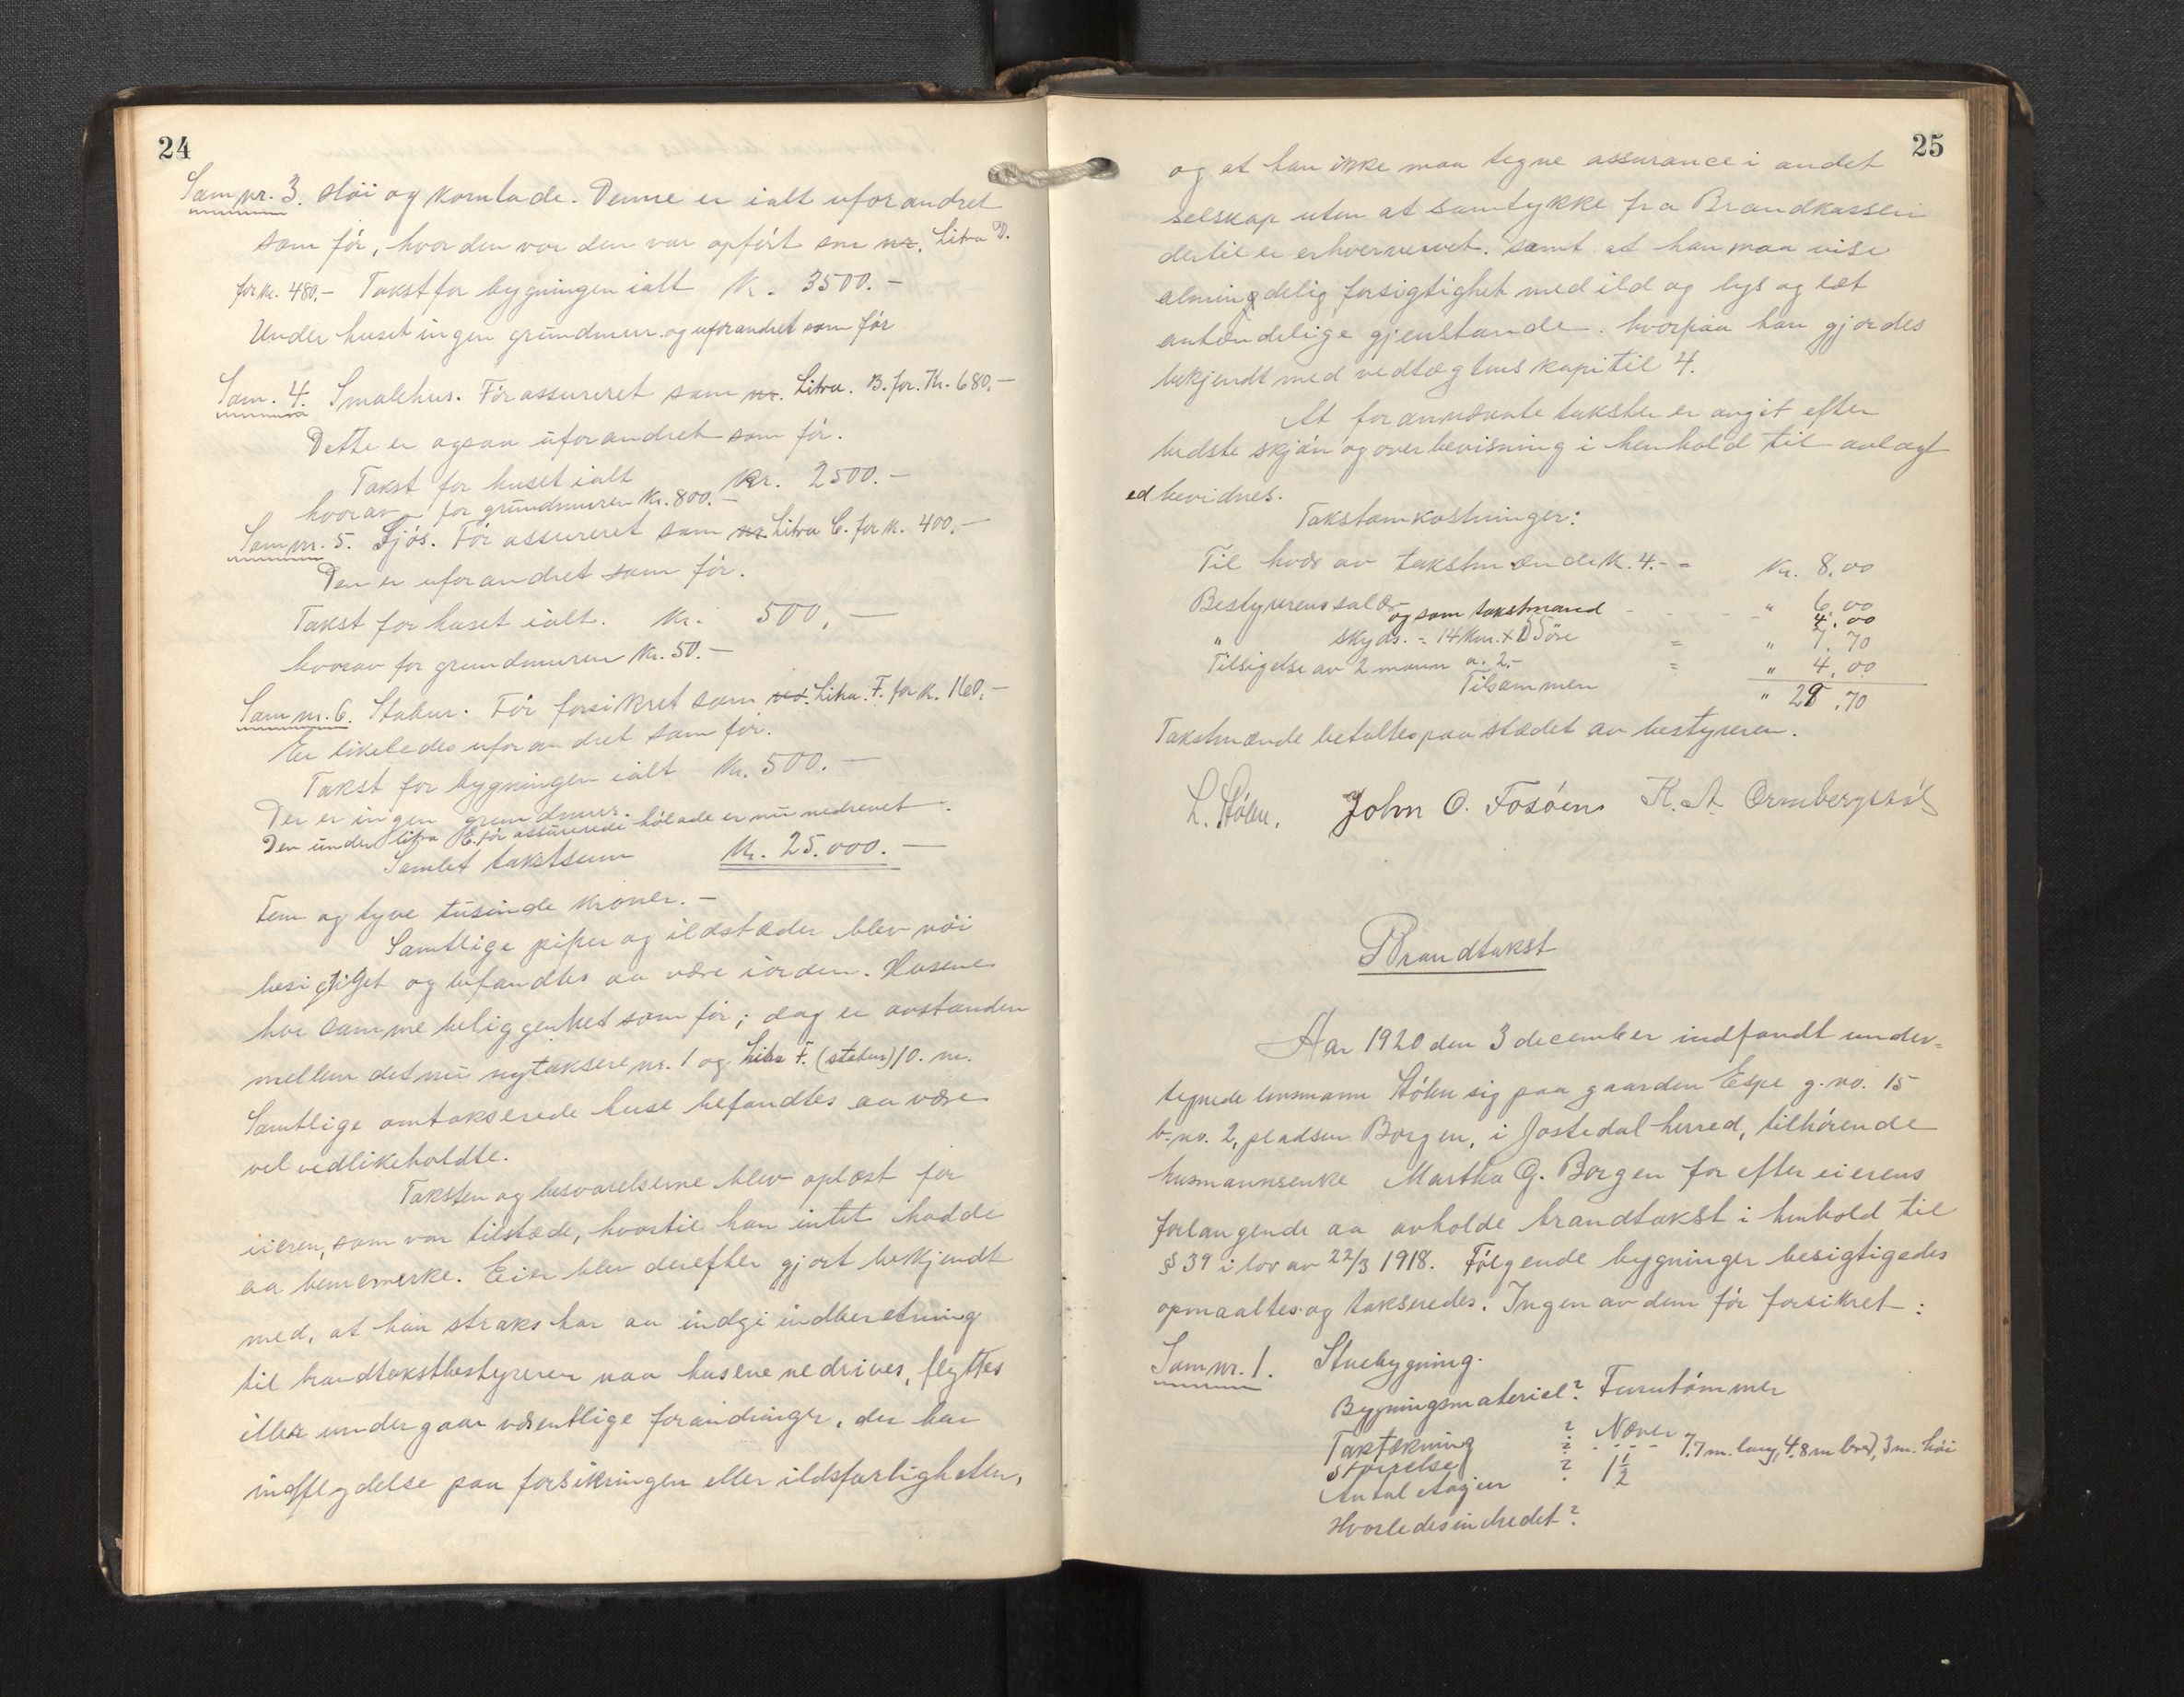 24
Som nr. 3. Höi og kornlade. Denne er ialt uforandret
som før, hvor den var den var opført som nr. Litra D.
for kr. 480.- Takst for bygningen ialt Kr. 3500.-
Under huset ingen grundmur og uforandret som før
Som. 4. Smalehus. Før assureret som nr. Litra. B. for. Kr. 680.-
Dette er ogsaa uforandret som før.
Takst for huset ialt Kr. 2500.-
hvorav for grundmuren Kr. 800.-
Som nr. 5. Fjös. Før assureret som nr. Litra C. for K. 400.-
Den er uforandret som før.
Takst for huset ialt. Kr. 500.-
hvorav for grundmuren Kr. 50.-
Som nr. 6. Stabur. Før forsikret som Litra. F. for K. 160.-
Er likeledes uforandret som før.
Takst for bygningen ialt Kr. 500.-
Der er ingen grundmur.
Den under litra E. før assurerede hölade er nu nedrevet.
Samlet takstsum Kr. 25.000.-
Fem og tyve tusinde kroner.-
Samtlige piper og ildstæder blev nöi
besigtiget og befandtes aa være iorden. Husene
har samme beliggenhet som før; dog er avstanden
mellem det nu nytaksere nr. 1 og Litra F. (stabur) 10. m.
Samtlige omtakserede huse befandtes aa være
vel vedlikeholdte.
Taksten og besvarelserne blev oplæst for
eieren, som var tilstede, hvortil han intet hadde
aa bemerke. Eier blev derefter gjort bekjendt
med, at han straks har aa indgi indberetning
til brandtakstbestyreren naar husene nedrives, flyttes
eller undergaar væsentlige forandringer, der har
indflydelse paa forsikringen eller ildsfarligheten,
25
og at han ikke maa tegne assurance i andet
selskap uten at samtykke fra Brandkassen
dertil er erhvervet. samt at han maa vise
almindelig forsigtighet med ild og lys og let
antændelige gjenstande. hvorpaa han gjordes
bekjendt med vedtægtens kapitel 4.
At forannævnte takster er avgit efter
bedste skjön og overbevisning i henhold til avlagt
ed bevidnes.
Takstomkostninger:
Til hver av takstmændene K. 4.- = Kr. 8.00
Bestyrerens salær - - - " 6.00
og som takstmand - " 4.00
" skyds. = 14 km. x 55 öre = " 7.70
Tilsigelse av 2 mann a. 2.- = " 4.00
Tilsammen " 29.70
Takstmænde betaltes paa stedet av bestyreren.
L. Stölen. John O. Fosöen K. A. Ormbergstöl
Brandtakst
Aar 1920 den 3 december indfandt under-
tegnede lensmann Stölen sig paa gaarden Espe g. no. 15
b. no. 2, pladsen Borgen, i Jostedal herred, tilhørende
husmannsenke Martha G. Borgen for efter eierens
forlangende aa avholde brandtakst i henhold til
§ 39 i lov av 22/3 1918. Følgende bygninger besigtigedes
opmaaltes og takseredes. Ingen av dem før forsikret:
Som nr. 1. Stuebygning.
Bygningsmateriel? Furutömmer
Taktækning ? Næver
Störrelse ? - - - - 7.7 m. lang, 4.8 m bred, 3 m. höi
Antal etager ? 1 1/2
Hvorledes indredet?